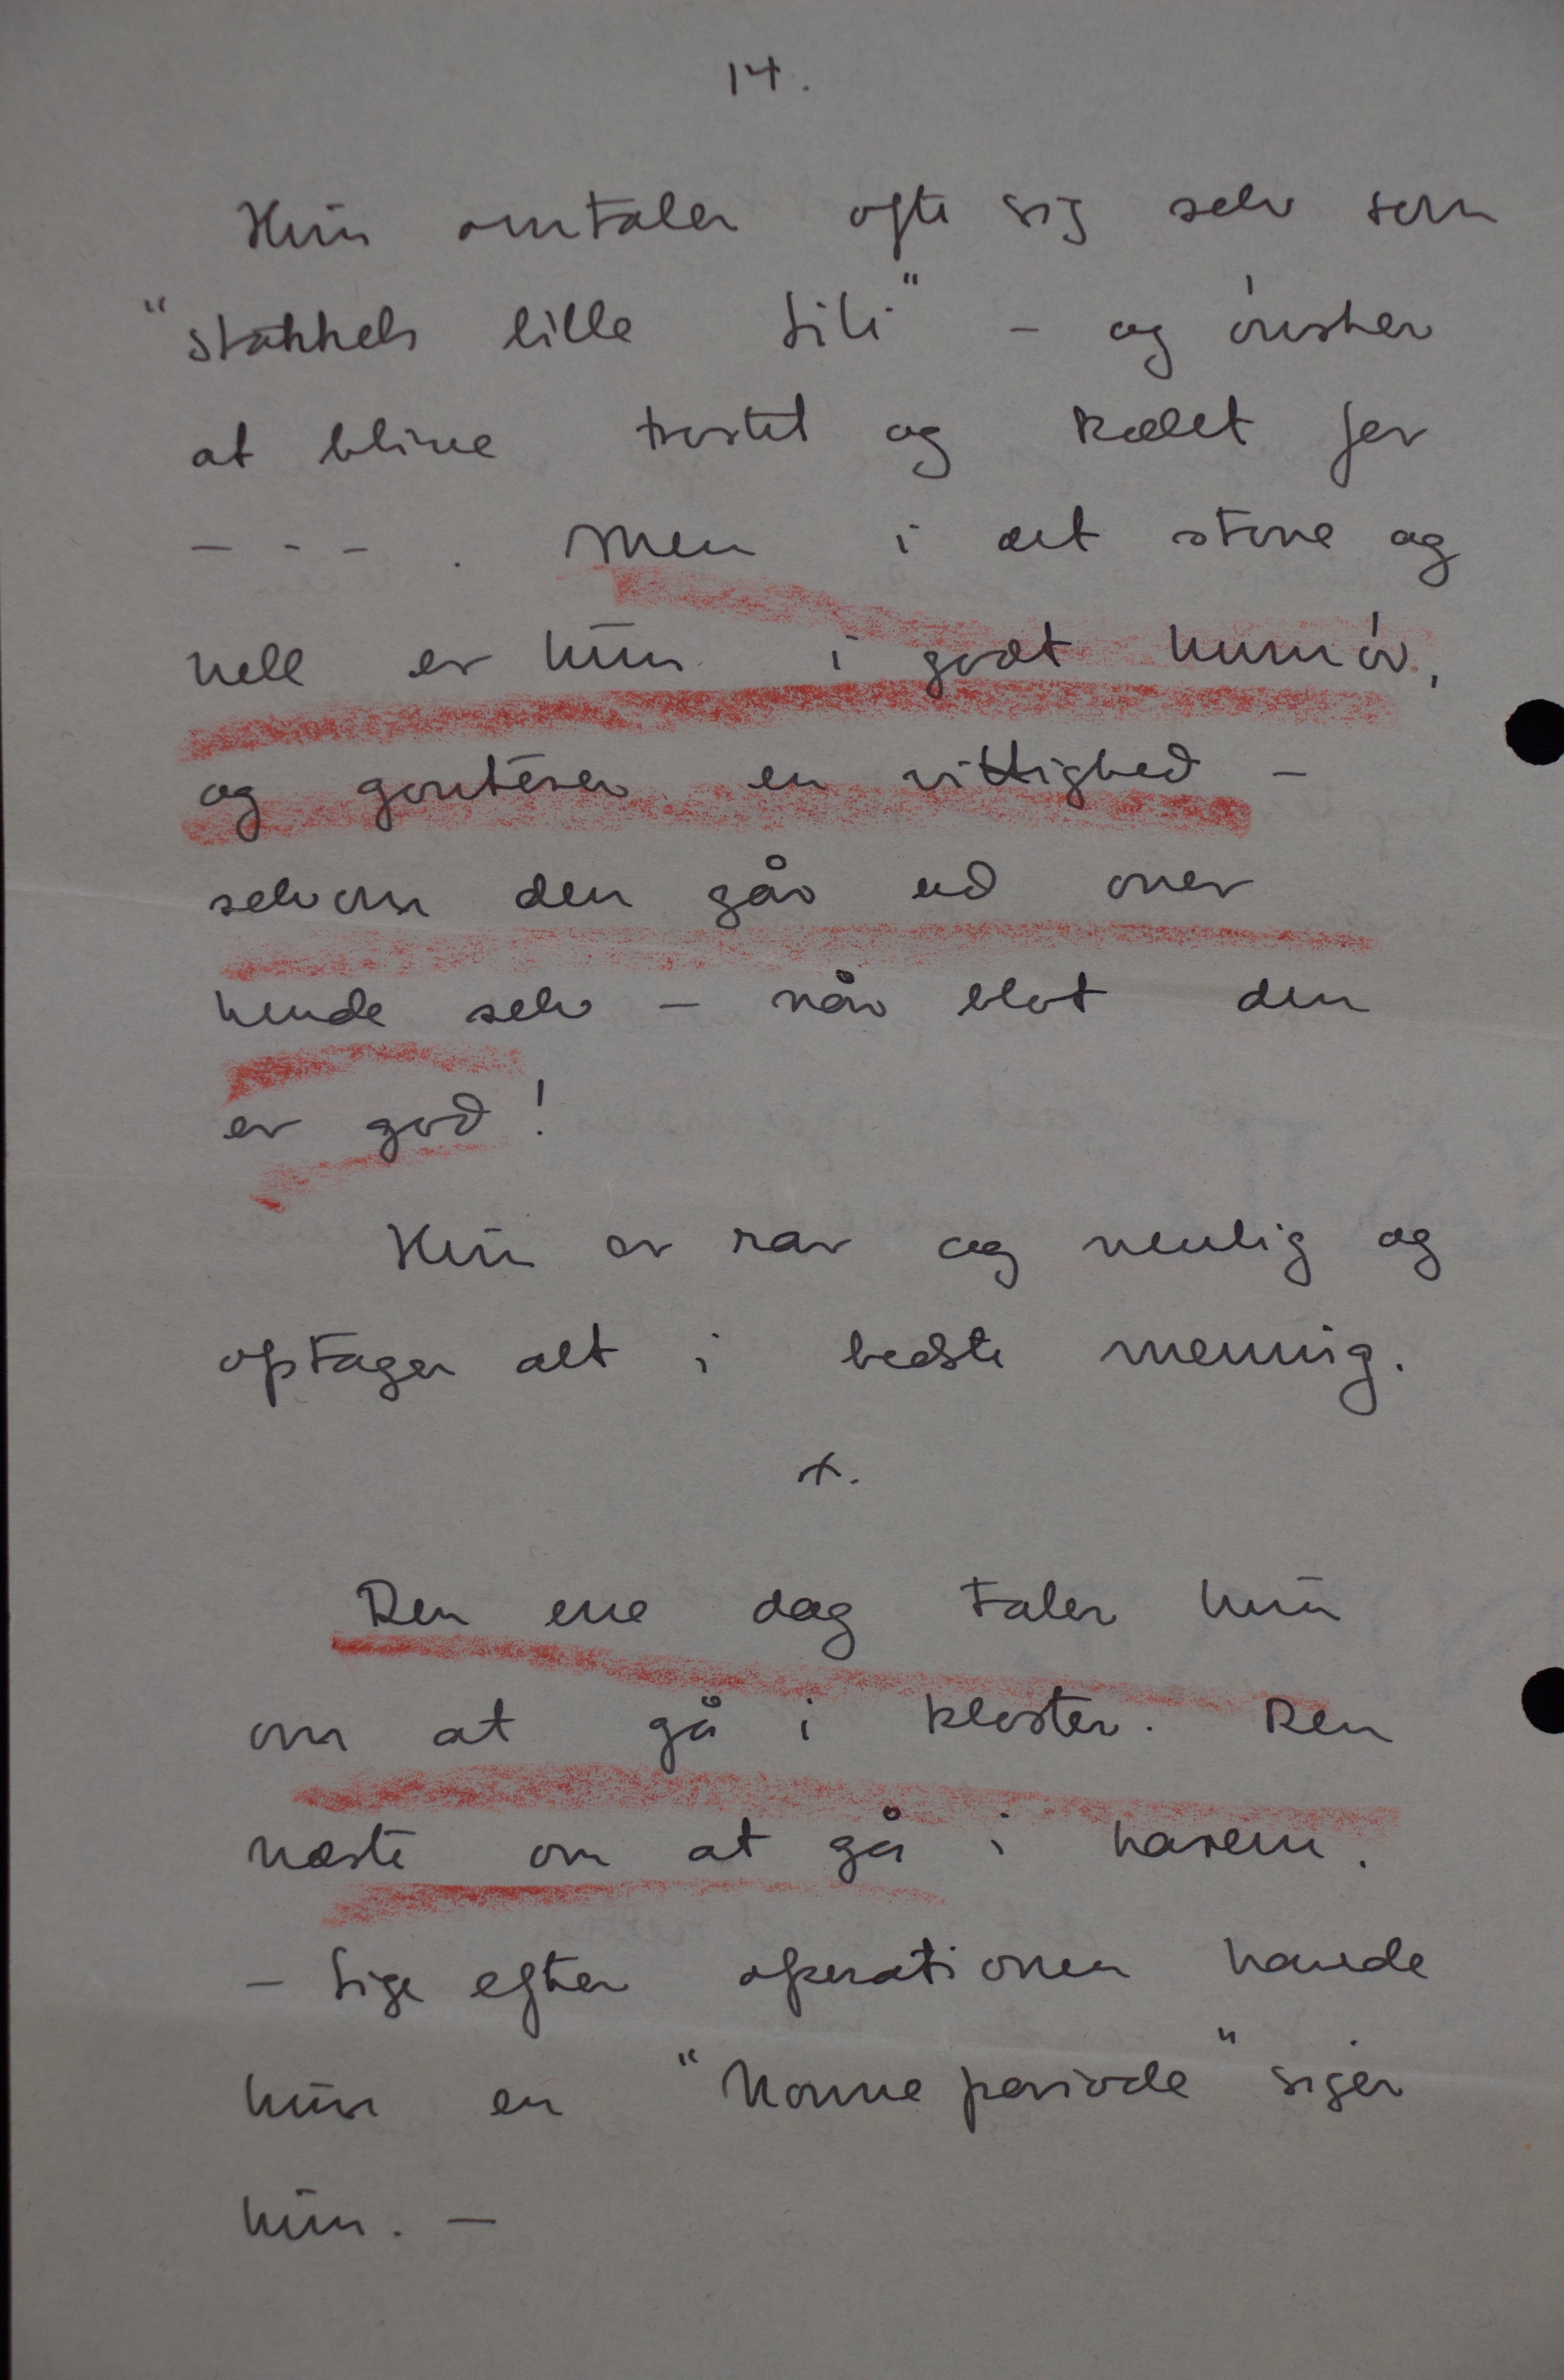 14.
Hun omtaler ofte sig selv som
"stakkels lille Lili" – og ønsker
at blive trøstet og kælet for
– . – . Men i det store og
hele er hun i godt humør,
og gouterer en vittighed –
selvom den går ud over
hende selv – når blot den
er god!
Hun er rar og nem og
optager alt i bedste mening.
x.
Den ene dag taler hun
om at gå i kloster. Den
næste om at gå i harem.
– Lige efter operationen havde
hun en "Nonneperiode" siger
hun. –